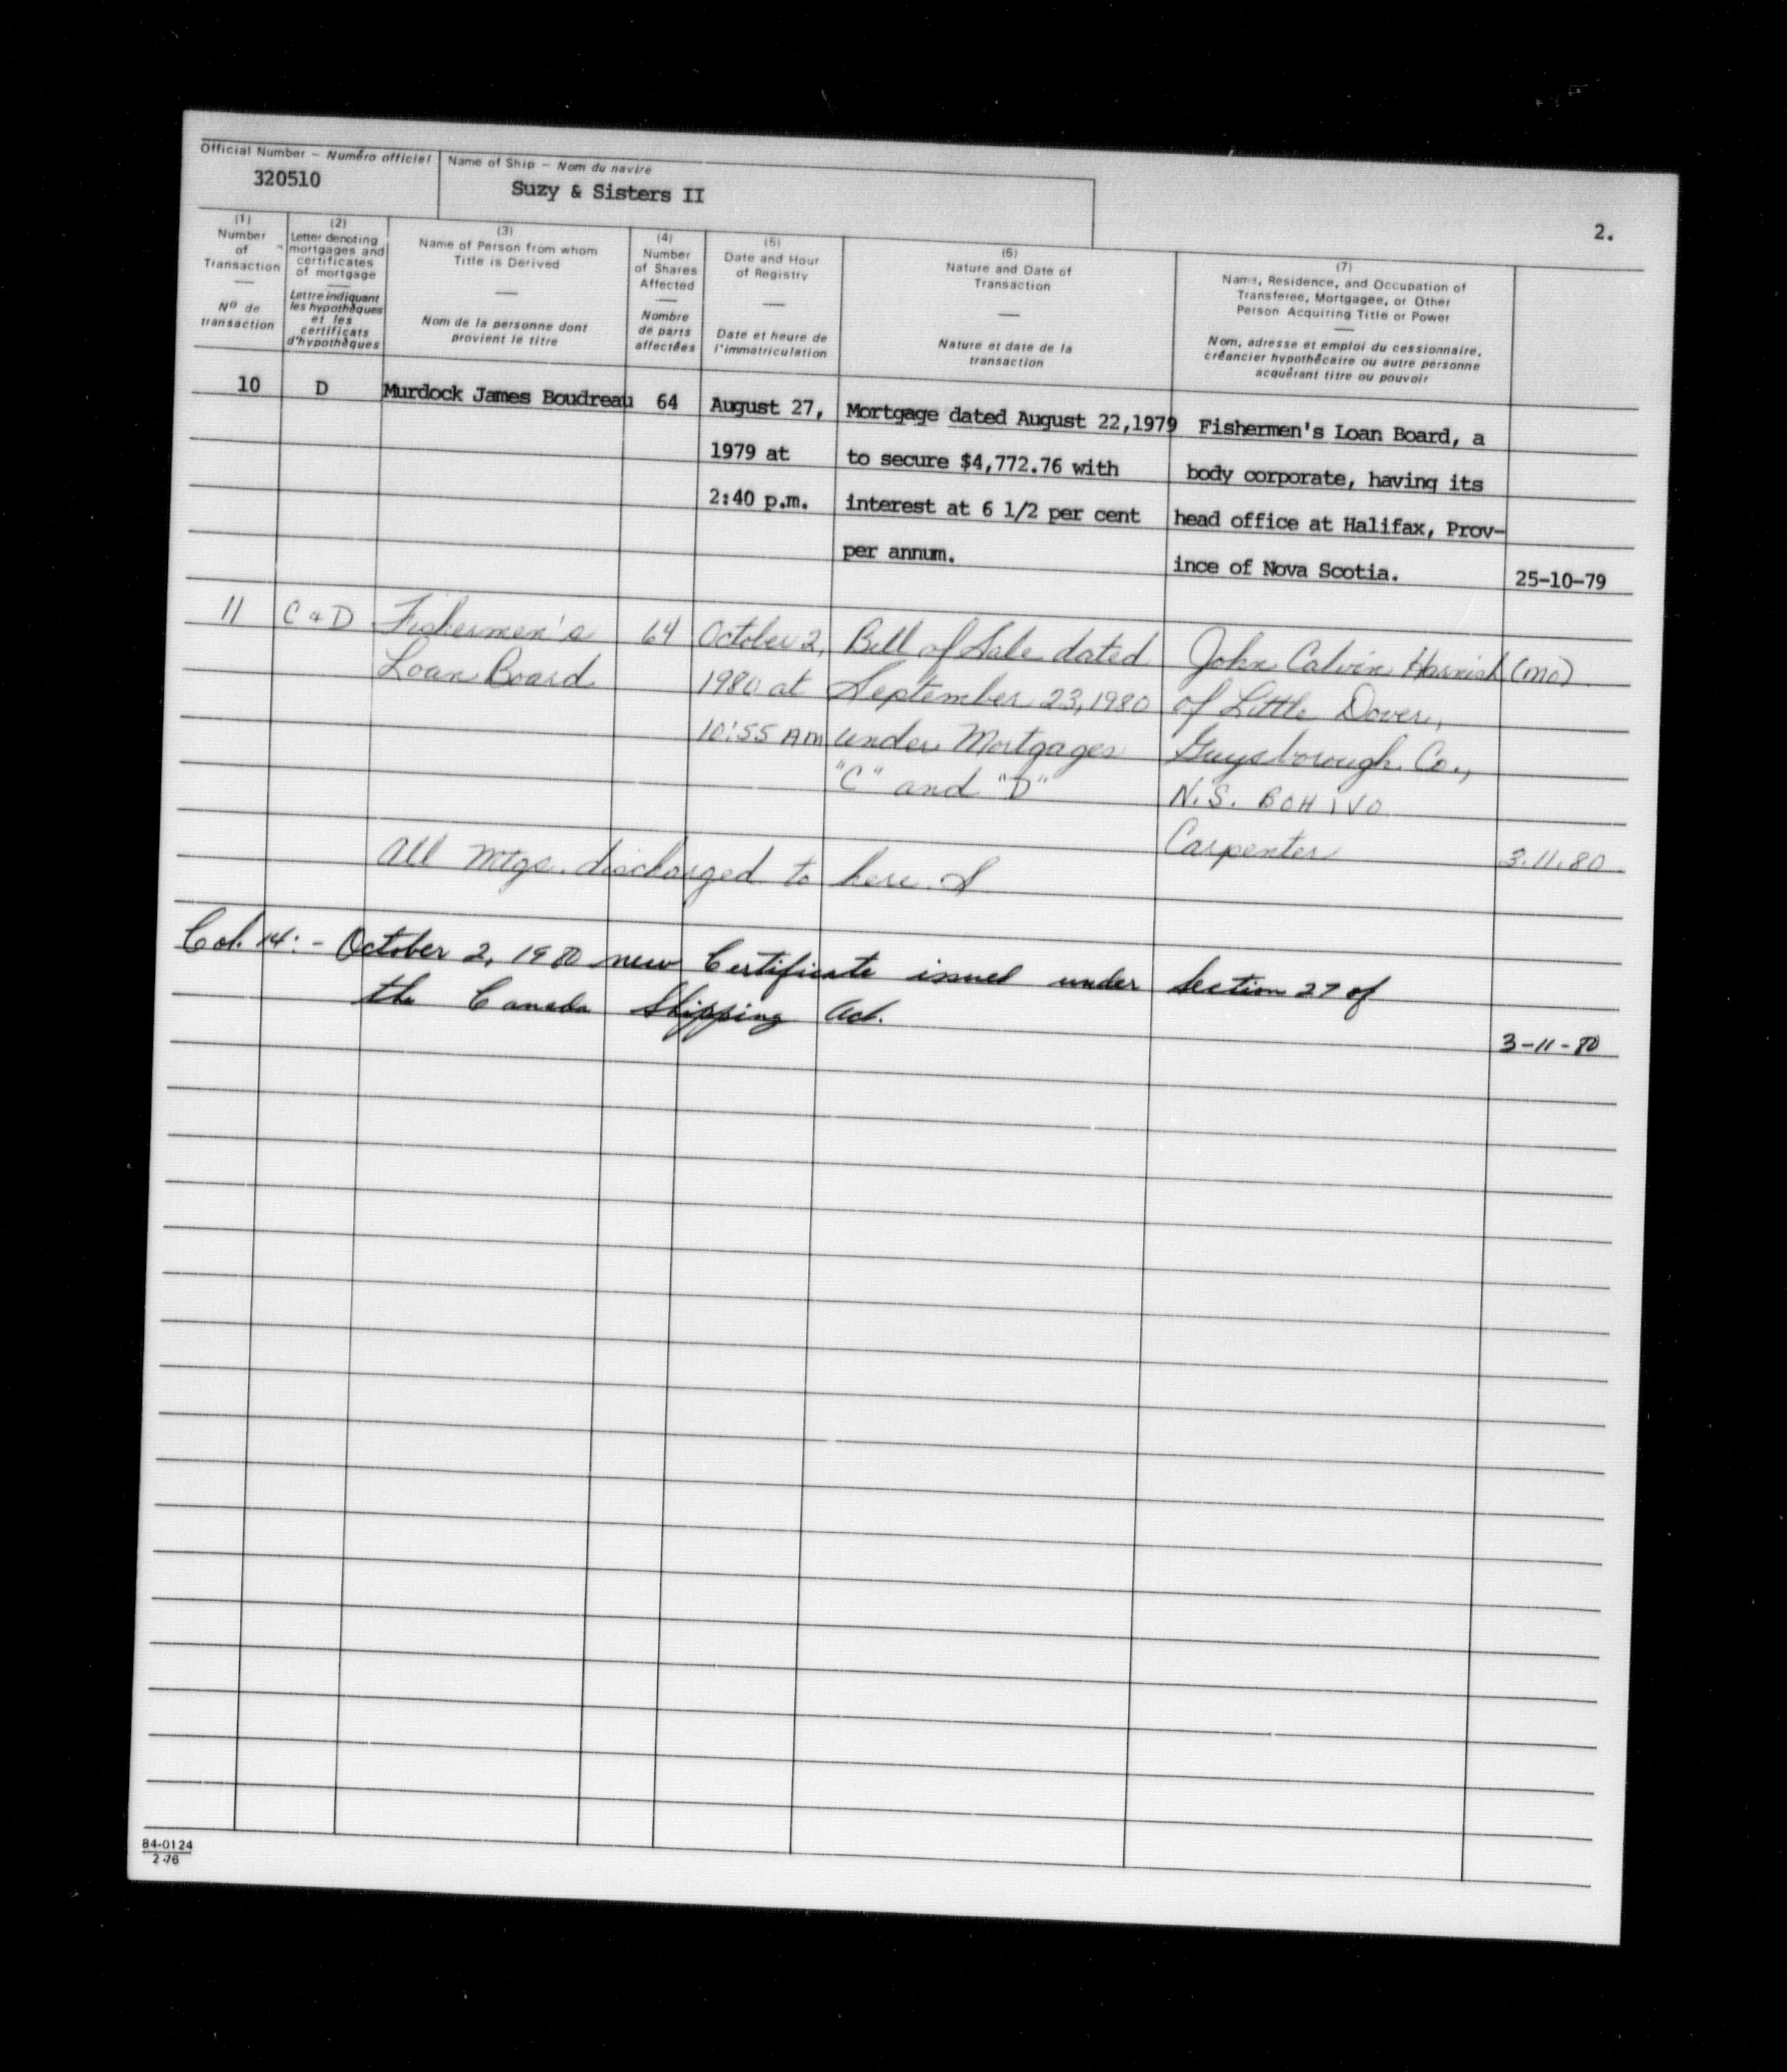 Official Number – Numéro officiel
320510
Name of Ship – Nom du navire
Suzy & Sisters II
2.
(1)
Number
of
Transaction
—
Nº de
transaction
(2)
Letter denoting
mortgages and
certificates
of mortgage
—
Lettre indiquant
les hypothèques
et les
certificats
d'hypothèques
(3)
Name of Person from whom
Title is Derived
—
Nom de la personne dont
provient le titre
(4)
Number
of Shares
Affected
—
Nombre
de parts
affectées
(5)
Date and Hour
of Registry
—
Date et heure de
l'immatriculation
(6)
Nature and Date of
Transaction
—
Nature et date de la
transaction
(7)
Name, Residence, and Occupation of
Transferee, Mortgagee, or Other
Person Acquiring Title or Power
—
Nom, adresse et emploi du cessionnaire,
créancier hypothécaire ou autre personne
acquérant titre ou pouvoir
10 D Murdock James Boudreau 64 August 27, Mortgage dated August 22,1979 Fishermen's Loan Board, a
1979 at to secure $4,772.76 with body corporate, having its
2:40 p.m. interest at 6 1/2 per cent head office at Halifax, Prov-
per annum. ince of Nova Scotia. 25-10-79
11 C & D Fishermen's 64 October 2, Bill of Sale dated John Calvin Harnish (mo)
Loan Board 1980 at September 23, 1980 of Little Dover,
10:55 AM under Mortgages Guysborough Co.,
"C" and "D" N.S. BOH 1V0
Carpenter 3.11.80
All mtgs. discharged to here.
Col. 14: - October 2, 1980 new Certificate issued under Section 27 of
the Canada Shipping Act.
3-11-80
84-0124
2-76